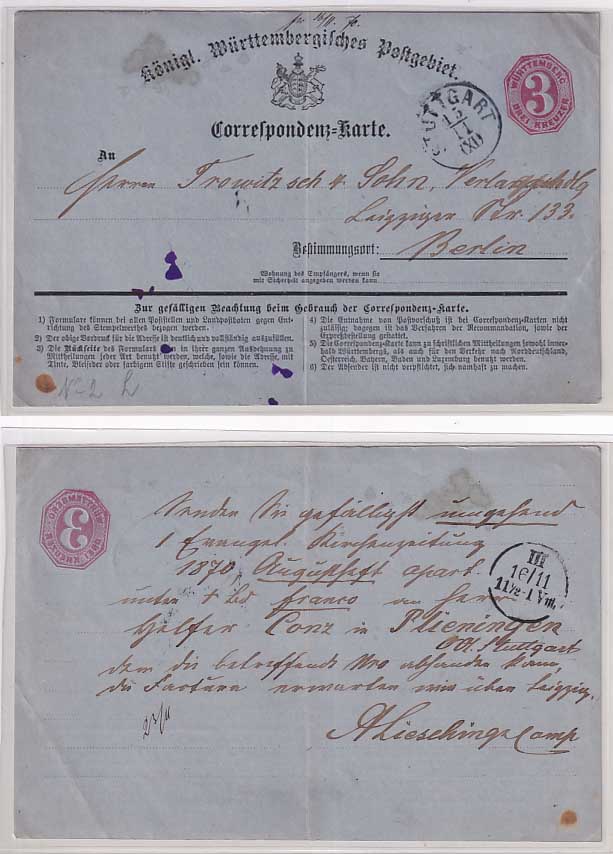 Königl. Württembergisches Postgebiet.
WÜRTTEMBERG
3
DREI KREUZER
STUTTGART
15
11
(XI)
Correspondenz-Karte.
An
Herren Trowitzsch & Sohn, Verlagshdlg
Leipziger Str. 133.
Bestimmungsort: Berlin
Wohnung des Empfängers, wenn sie
mit Sicherheit angegeben werden kann
Zur gefälligen Beachtung beim Gebrauch der Correspondenz-Karte.
1) Formulare können bei allen Poststellen und Landpostboten gegen Ent-
richtung des Stempelwerthes bezogen werden.
2) Der obige Vordruck für die Adresse ist deutlich und vollständig auszufüllen.
3) Die Rückseite des Formulars kann in ihrer ganzen Ausdehnung zu
Mittheilungen jeder Art benutzt werden, welche, sowie die Adresse, mit
Tinte, Bleifeder oder farbigem Stifte geschrieben sein können.
4) Die Entnahme von Postvorschuß ist bei Correspondenz-Karten nicht
zulässig; dagegen ist das Verfahren der Recommandation, sowie der
Expreßbestellung gestattet.
5) Die Correspondenz-Karte kann zu schriftlichen Mittheilungen sowohl inner-
halb Württembergs, als auch für den Verkehr nach Norddeutschland,
Oesterreich, Bayern, Baden und Luxemburg benutzt werden.
6) Der Absender ist nicht verpflichtet, sich namhaft zu machen.
No 2
WÜRTTEMBERG
3
DREI KREUZER
Senden Sie gefälligst umgehend
1 Evangel. Kirchenzeitung
1870 Augustheft apart
unter + Bd. franco an Herr
Helfer Conz in Plieningen
OA. Stuttgart
dem die betreffende Nro abhanden kam,
die Factura erwarten wir über Leipzig.
A Liesching & Comp
III
16/11
11½-1 Vm.
23/11